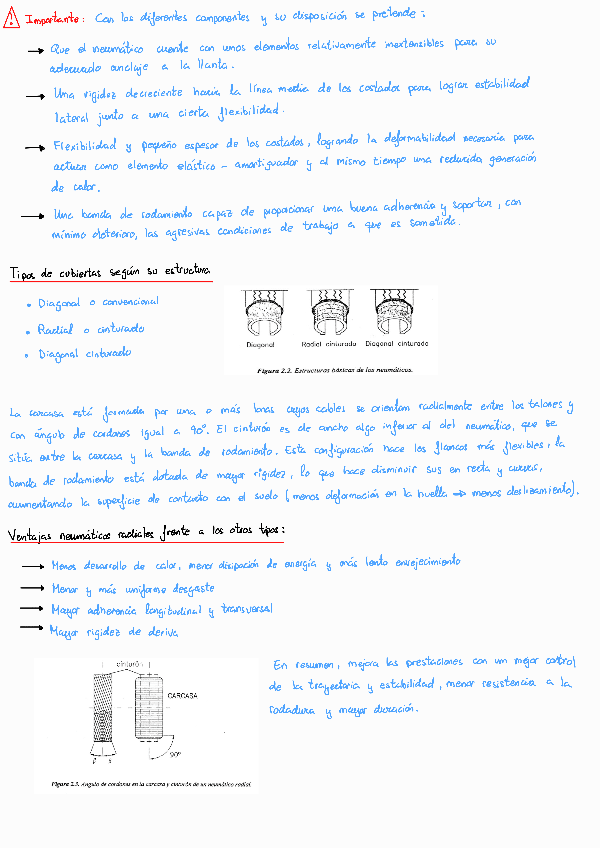 Importante: Con los diferentes componentes y su disposición se pretende:
→ Que el neumático cuente con unos elementos relativamente inextensibles para su
adecuado anclaje a la llanta.
→ Una rigidez decreciente hacia la línea media de los costados para lograr estabilidad
lateral junto a una cierta flexibilidad.
→ Flexibilidad y pequeño espesor de los costados, logrando la deformabilidad necesaria para
actuar como elemento elástico - amortiguador y al mismo tiempo una reducida generación
de calor.
→ Una banda de rodamiento capaz de proporcionar una buena adherencia y soportar, con
mínimo deterioro, las agresivas condiciones de trabajo a que es sometida.
Tipos de cubiertas según su estructura
• Diagonal o convencional
• Radial o cinturado
• Diagonal cinturado
Diagonal Radial cinturado Diagonal cinturado
Figura 2.2. Estructuras básicas de los neumáticos.
La carcasa está formada por una o más lonas cuyos cables se orientan radialmente entre los talones y
con ángulo de cordones igual a 90º. El cinturón es de ancho algo inferior al del neumático, que se
sitúa entre la carcasa y la banda de rodamiento. Esta configuración hace los flancos más flexibles, la
banda de rodamiento está dotada de mayor rigidez, lo que hace disminuir sus en recta y curvas,
aumentando la superficie de contacto con el suelo (menos deformación en la huella → menos deslizamiento).
Ventajas neumáticos radiales frente a los otros tipos:
→ Menos desarrollo de calor, menor disipación de energía y más lento envejecimiento
→ Menor y más uniforme desgaste
→ Mayor adherencia longitudinal y transversal
→ Mayor rigidez de deriva
cinturón
CARCASA
90º
Figura 2.3. Ángulo de cordones en la carcasa y cinturón de un neumático radial.
En resumen, mejora las prestaciones con un mejor control
de la trayectoria y estabilidad, menor resistencia a la
rodadura y mayor duración.